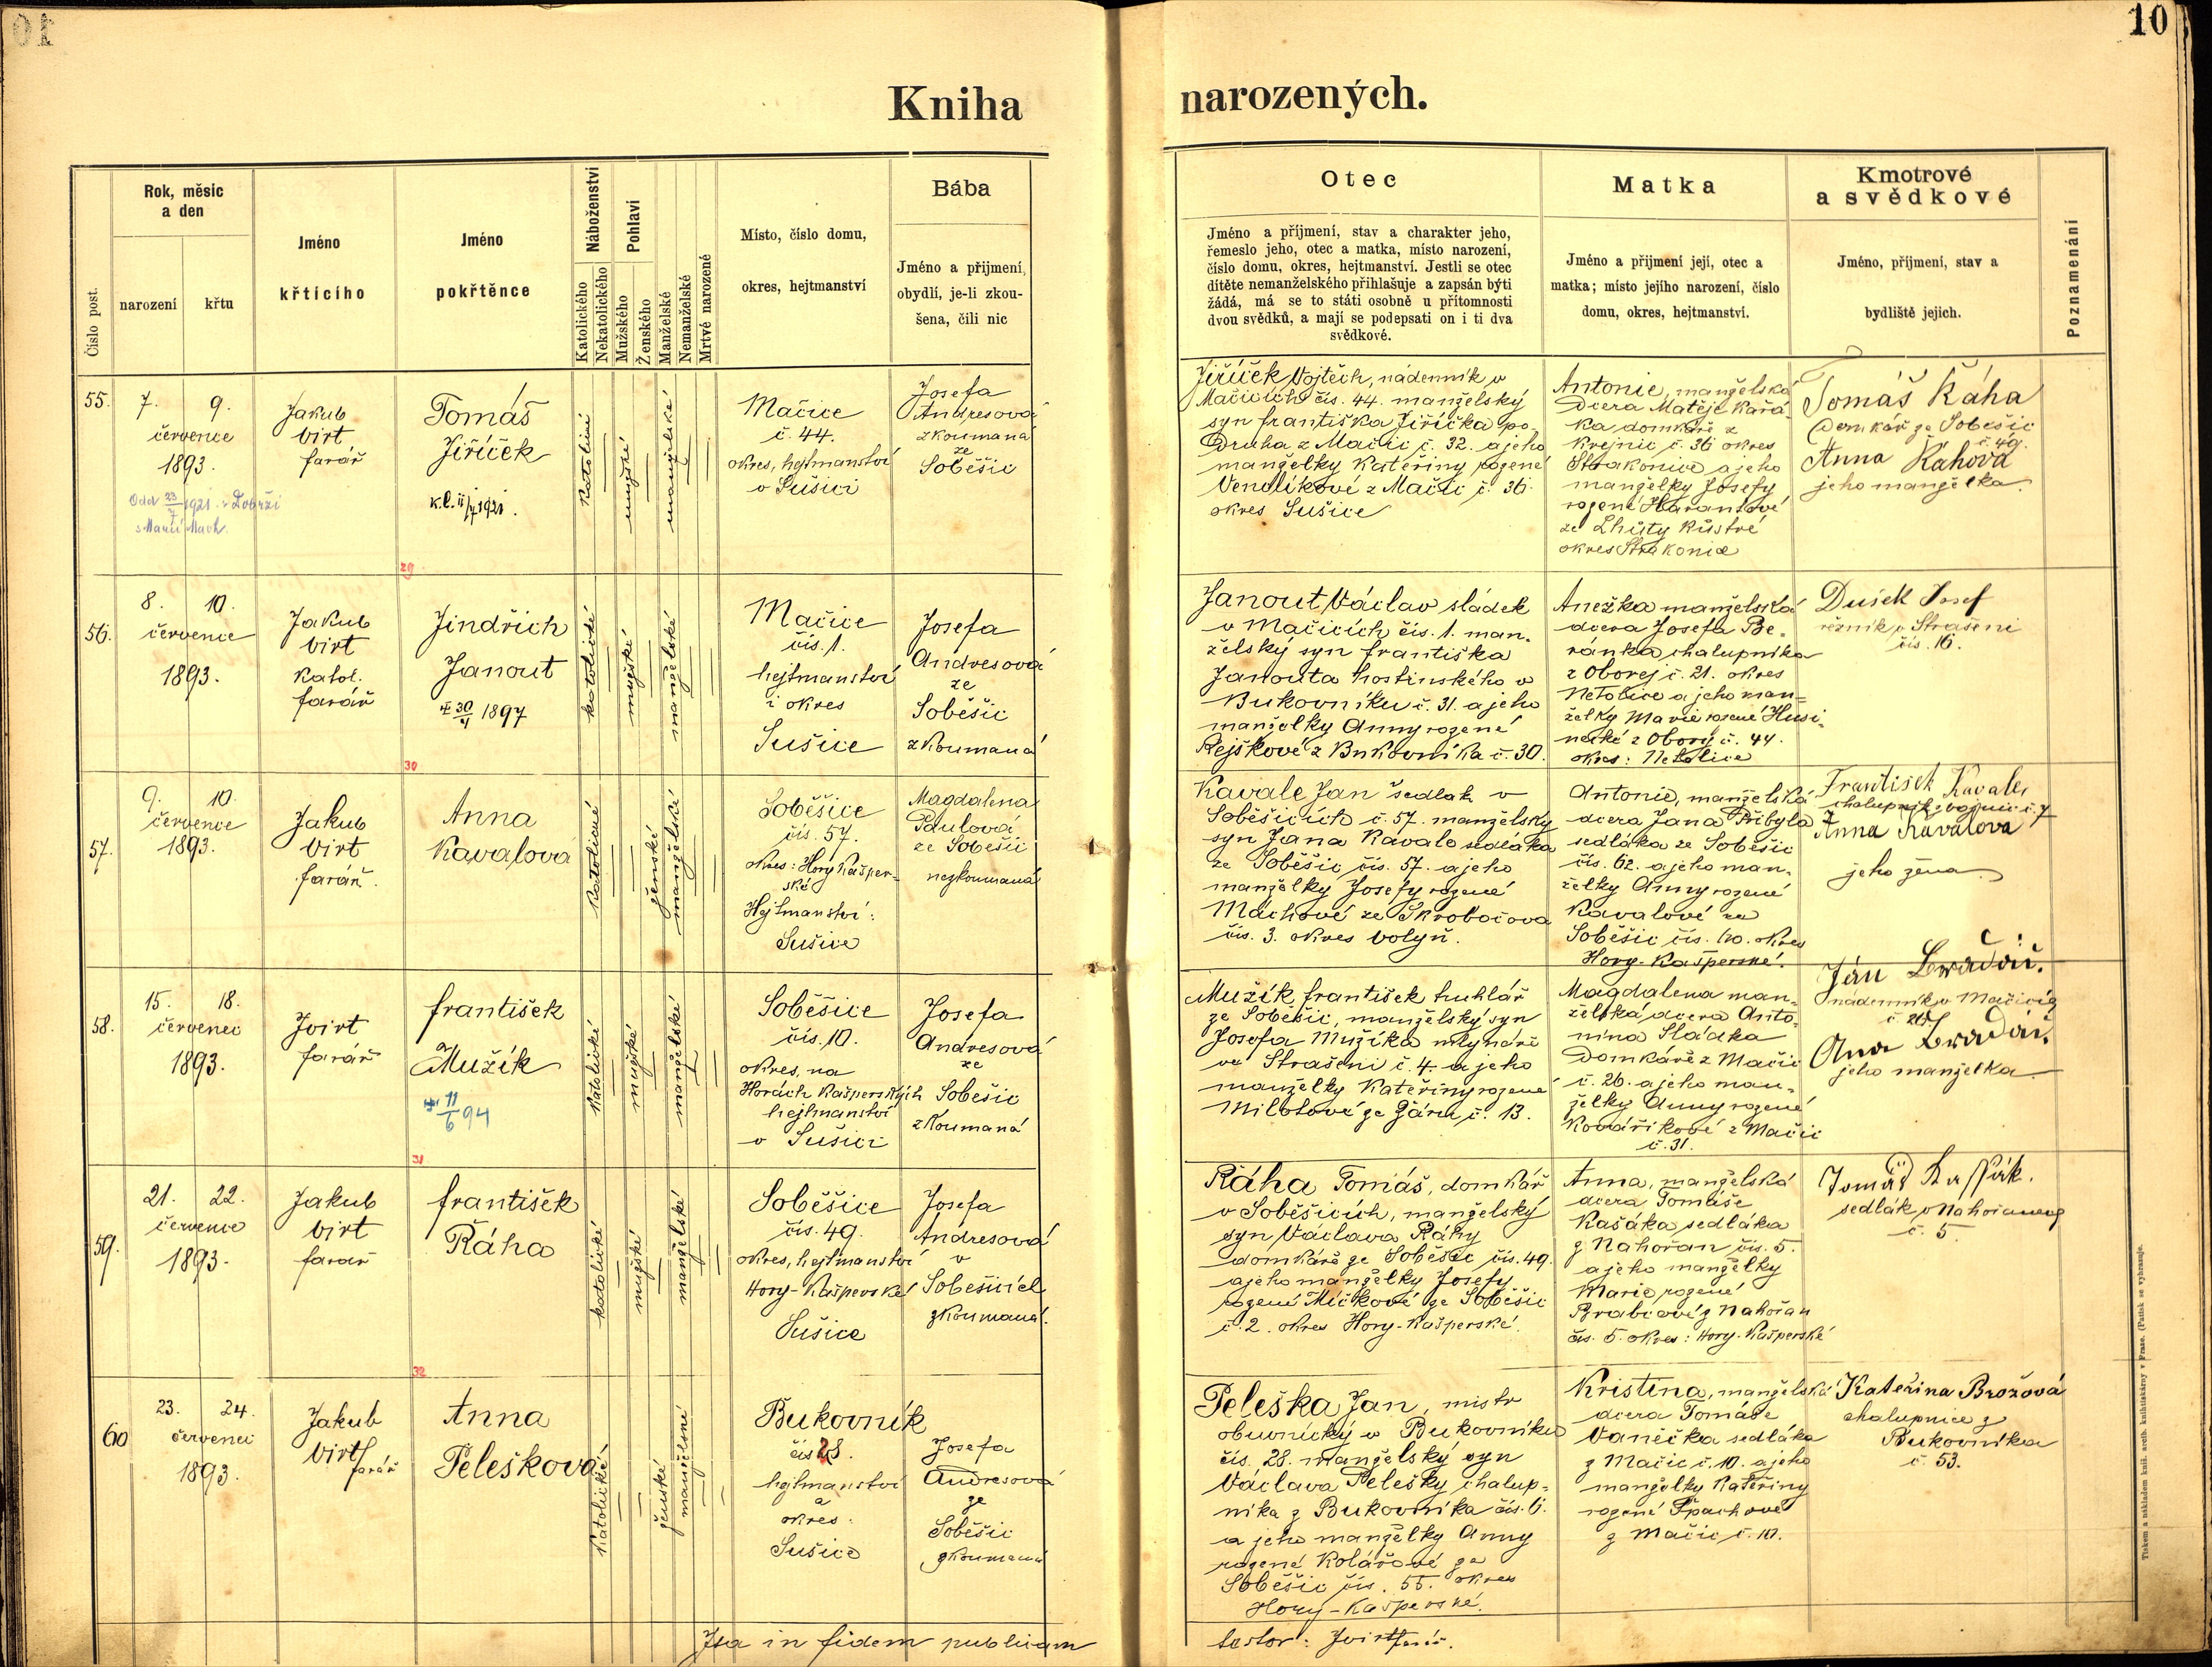 10
Kniha narozených.
Číslo post.
Rok, měsíc
a den
narození
křtu
Jméno
křtícího
Jméno
pokřtěnce
Náboženství
Katolického
Nekatolického
Pohlaví
Mužského
Ženského
Manželské
Nemanželské
Mrtvé narozené
Místo, číslo domu,
okres, hejtmanství
Bába
Jméno a přijmení,
obydlí, je-li zkou-
šena, čili nic
Otec
Jméno a příjmení, stav a charakter jeho,
řemeslo jeho, otec a matka, místo narození,
číslo domu, okres, hejtmanství. Jestli se otec
dítěte nemanželského přihlašuje a zapsán býti
žádá, má se to státi osobně u přítomnosti
dvou svědků, a mají se podepsati on i ti dva
svědkové.
Matka
Jméno a přijmení její, otec a
matka; místo jejího narození, číslo
domu, okres, hejtmanství.
Kmotrové
a svědkové
Jméno, příjmení, stav a
bydliště jejich.
Poznamenání
55.
7. 9.
července
1893.
Odd 23/7 1921 v Dobrži
s Marií Mach.
Jakub
Virt
farář
Tomáš
Jiříček
k.l. 11/7 1921.
katolické
mužské
manželské
Mačice
č. 44.
okres, hejtmanství
v Sušici
Josefa
Andresová
zkoumaná
ze
Soběšic
Jiříček Vojtěch, nádenník v
Mačicích čís. 44. manželský
syn františka Jiříčka po-
druha z Mačic č. 32. a jeho
manželky Kateřiny rozené
Vendlíkové z Mačic č. 36.
okres Sušice
Antonie, manželská
dcera Matěje Kařá-
ka domkáře z
Krejnic č. 36 okres
Strakonice a jeho
manželky Josefy
rozené Harantové
ze Lhůty
okres Strakonice
Tomáš Řáha
Domkář ze Soběšic
č. 49.
Anna Řahová
jeho manželka.
29
56.
8. 10.
července
1893.
Jakub
Virt
katol.
farář
Jindřich
Janout
30/4 1897
katolické
mužské
manželské
Mačice
čís. 1.
hejtmanství
i okres
Sušice
Josefa
Andresová
ze
Soběšic
zkoumaná
Janout Václav sládek
v Mačicích čís. 1. man-
želský syn františka
Janouta hostinského v
Bukovníku č. 31. a jeho
manželky Anny rozené
Rejškové z Bukovníka č. 30.
Anežka manželská
dcera Josefa Be-
ránka chalupníka
z Oborej č. 21. okres
Netolice a jeho man-
želky Marie rozené Husi-
necké z Obory č. 44.
okres: Netolice
Dušek Josef
řezník v Strašeni
čís. 16.
30
57.
9. 10.
července
1893.
Jakub
Virt
farář.
Anna
Kavalová
katolické
ženské
manželské
Soběšice
čís. 57.
okres: Hory Kašper-
ské
Hejtmanství:
Sušice
Magdalena
Paulová
ze Soběšic
nezkoumaná
Kavale Jan sedlák v
Soběšicích č. 57. manželský
syn Jana Kavale sedláka
ze Soběšic čís. 57. a jeho
manželky Josefy rozené
Máchové ze Škrobočova
čís. 3. okres Volyň.
Antonie, manželská
dcera Jana Přibyla
sedláka ze Soběšic
čís. 62. a jeho man-
želky Anny rozené
Kavalové ze
Soběšic čís. 60. okres
Hory-Kašperské.
František Kavale
chalupník z Vojnic č. 7
Anna Kavalova
jeho žena
58.
15. 18.
červenci
1893.
JVirt
farář
františek
Mužík
11/6 94
katolické
mužské
manželské
Soběšice
čís. 10.
okres, na
Horách Kašperských
hejtmanství
v Sušici
Josefa
Andresová
ze
Soběšic
zkoumaná
Mužík františek truhlář
ze Soběšic, manželský syn
Josefa Mužíka mlynáře
ve Strašeni č. 4. a jeho
manželky Kateřiny rozené
Milotové ze Žáru č. 13.
Magdalena man-
želská dcera Anto-
nína Sládka
Domkáře z Mačic
č. 26. a jeho man-
želky Anny rozené
Kovaříkové z Mačic
č. 31.
Ján Bradáč.
nádenník v Mačicíg
Ana Bradáč.
jeho manželka
31
59.
21. 22.
července
1893.
Jakub
Virt
farář
františek
Řáha
katolické
mužské
manželské
Soběšice
čís. 49.
okres, hejtmanství
Hory-Kašperské
Sušice
Josefa
Andresová
v
Soběšicích
zkoumaná.
Řáha Tomáš, domkář
v Soběšicích, manželský
syn Václava Ráhy
domkáře ze Soběšic čís. 49.
a jeho manželky Josefy
rozené Míčkové ze Soběšic
č. 2. okres Hory-Kašperské.
Anna, manželská
dcera Tomáše
Kašáka sedláka
z Nahořan čís. 5.
a jeho manželky
Marie rozené
Brabcové z Nahořan
čís. 5. okres: Hory-Kašperské
Tomáš Kaššák.
sedlák v Nahořanech
č. 5
32
60
23. 24.
červenci
1893.
Jakub
Virt
farář
Anna
Pelešková
katolické
ženské
manželské
Bukovník
čís 28.
hejtmanství
a
okres:
Sušice
Josefa
Andresová
ze
Soběšic
zkoumaná
Peleška Jan, mistr
obuvnický v Bukovníku
čís. 28. manželský syn
Václava Pelešky chalup-
níka z Bukovníka čís. 6.
a jeho manželky Anny
rozené Kolářové ze
Soběšic čís. 55. okres
Hory-Kašperské.
Kristina, manželská
dcera Tomáše
Vaněčka sedláka
z Mačic č. 10. a jeho
manželky Kateřiny
rozené Špachové
z Mačic č. 10.
Kateřina Brožová
chalupnice z
Bukovníka
č. 53.
Ita in fidem publicam
testor: JVirt farář.
Tiskem a nákladem kníž. arcib. knihtiskárny v Praze. (Patisk se vyhrazuje.